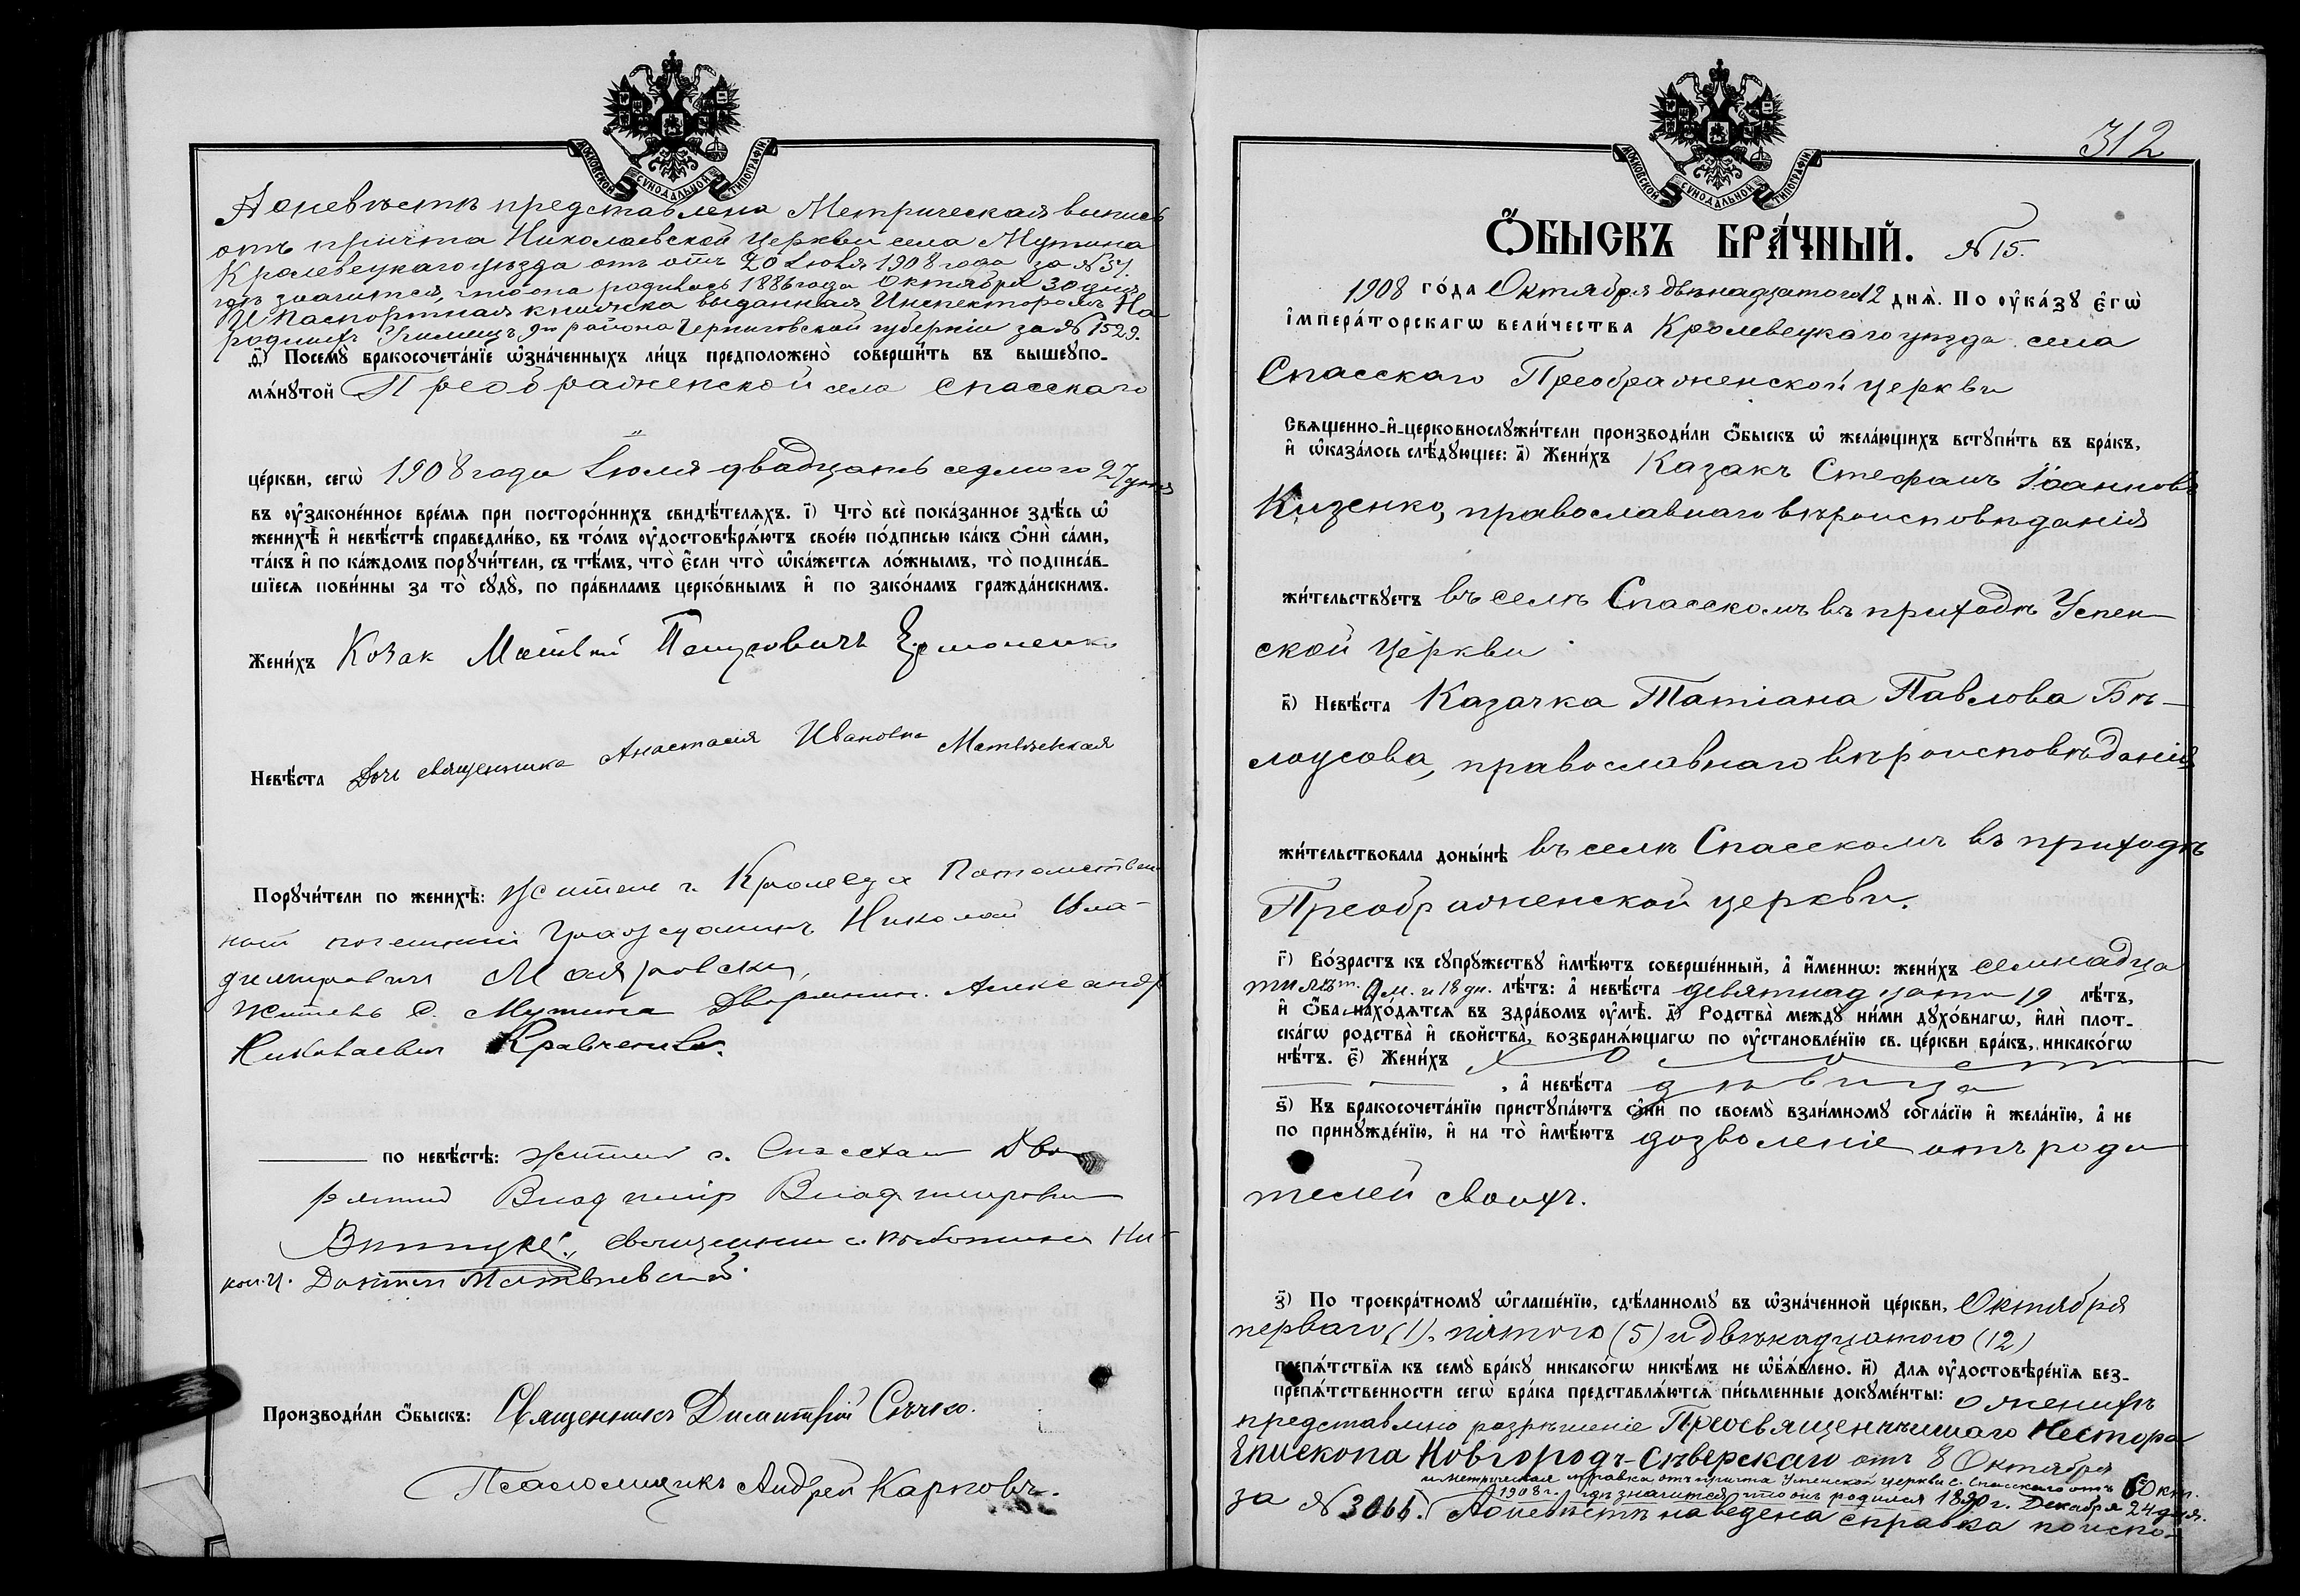 МОСКОВСКОЙ СѴНОДАЛЬНОЙ ТИПОГРАФІИ
А о невѣстѣ представлена Метрическая выпись
отъ причта Николаевской церкви села Мутина
Кролевецкаго уѣзда отъ 20 Іюля 1908 года за № 37.
гдѣ значится, что она родилась 1886 года Октября 30 дня
И паспортная книжка выданная Инспекторомъ На
родныхъ Училищъ района Черниговской губерніи за № 1529.
д҃) Посемꙋ̀ бракосочета́нїе ѡ҆зна́ченныхъ ли́цъ предположено̀ соверши́ть въ вышеꙋпо-
мѧ́нꙋтой Преображенской села Спасскаго
це́ркви, сегѡ̀ 1908 года Іюля двадцать седмого 27 дня
въ ᲂу҆законе́нное вре́мѧ при посторо́ннихъ свидѣ́телѧхъ. і҃) Что̀ всѐ пока́занное здѣ́сь ѡ҆
женихѣ̀ и҆ невѣ́стѣ справедли́во, въ то́мъ ᲂу҆достовѣрѧ́ютъ свое́ю по́дписью ка́къ ѻ҆нѝ са́ми,
та́къ и҆ по ка́ждомъ порꙋчи́тели, съ тѣ́мъ, что̀ є҆́сли что̀ ѡ҆ка́жетсѧ ло́жнымъ, то̀ подписа́в-
шїесѧ пови́нны за то̀ сꙋдꙋ̀, по пра́виламъ церко́внымъ и҆ по зако́намъ гражда́нскимъ.
Жени́хъ Козак Матвѣй Ермоленко
Невѣ́ста Дочь священника Анастасія Ивановна Матвѣевская
Порꙋчи́тели по женихѣ̀: житель г. Кролевца Потомствен
ный почетный Гражданинъ Николай Вла-
димировичъ
житель с. Мутина Дворянин. Александр
Николаевич Кравченко.
по невѣ́стѣ: житель с. Спасскаго Дво
рянин Владимір Владимирович
священник с. Ни-
кол. ц. Матвѣевскій.
Производи́ли ѻ҆́быскъ: Священникъ Димитрій Сѣчко.
Псаломщикъ Андрей Карповъ.
312
МОСКОВСКОЙ СѴНОДАЛЬНОЙ ТИПОГРАФІИ
Ѻ҆́БЫСКЪ БРА́ЧНЫЙ. № 15.
1908 го́да Октября двѣнадцатого 12 днѧ̀. По ᲂу҆ка́зꙋ є҆гѡ̀
і҆мпера́торскагѡ вели́чества Кролевецкаго уѣзда села
Спасскаго Преображенской церкви
Свѧщенно-и҆-церковнослꙋжи́тели производи́ли ѻ҆́быскъ ѡ҆ жела́ющихъ встꙋпи́ть въ бра́къ,
и҆ ѡ҆каза́лось слѣ́дꙋющее: а҃) Жени́хъ Казакъ Стефанъ Іоанновъ
Кизенко, православнаго вѣроисповѣданія
жи́тельствꙋетъ въ селѣ Спасскомъ въ приходѣ Успен-
ской церкви
в҃) Невѣ́ста Казачка Татіана Павлова Бѣ-
лоусова, православнаго вѣроисповѣданія
жи́тельствовала доны́нѣ въ селѣ Спасскомъ въ приходѣ
Преображенской церкви.
г҃) Во́зрастъ къ сꙋпрꙋ́жествꙋ и҆мѣ́ютъ соверше́нный, а҆ и҆́меннѡ: жени́хъ семнадца
ти лѣт. 9 м. и 18 дн. лѣ́тъ: а҆ невѣ́ста девятнадцати 19 лѣ́тъ,
и҆ ѻ҆́ба нахо́дѧтсѧ въ здра́вомъ ᲂу҆мѣ̀. д҃) Родства̀ междꙋ̀ ни́ми дꙋхо́внагѡ, и҆лѝ плот-
ска́гѡ родства̀ и҆ свойства̀, возбранѧ́ющагѡ по ᲂу҆становле́нїю св. це́ркви бра́къ, никако́гѡ
нѣ́тъ. є҃) Жени́хъ холостъ
, а҆ невѣ́ста дѣвица
ѕ҃) Къ бракосочета́нїю пристꙋпа́ютъ ѻ҆нѝ по своемꙋ̀ взаи́мномꙋ согла́сїю и҆ жела́нїю, а҆ не
по принꙋжде́нїю, и҆ на то̀ и҆мѣ́ютъ дозволеніе отъ роди
телей своихъ.
з҃) По троекра́тномꙋ ѡ҆глаше́нїю, сдѣ́ланномꙋ въ ѡ҆зна́ченной це́ркви, Октября
перваго (1), пятого (5) и двѣнадцатого (12)
препѧ́тствїѧ къ семꙋ̀ бра́кꙋ никако́гѡ никѣ́мъ не ѡ҆б̾ѧ́влено. и҃) Длѧ ᲂу҆достовѣре́нїѧ без-
препѧ́тственности сегѡ̀ бра́ка представлѧ́ютсѧ пи́сьменные докꙋме́нты: о женихѣ
представлено разрѣшеніе Преосвященнѣйшаго Нестора
Епископа Новгородъ-Сѣверскаго отъ 8 Октября
и метрическая справка отъ причта Успенской церкви с. Спасскаго отъ 6 Окт.
1908 г. гдѣ значится, что онъ родился 1890 г. Декабря 24 дня.
за № 3066. А о невѣстѣ наведена справка по испо-